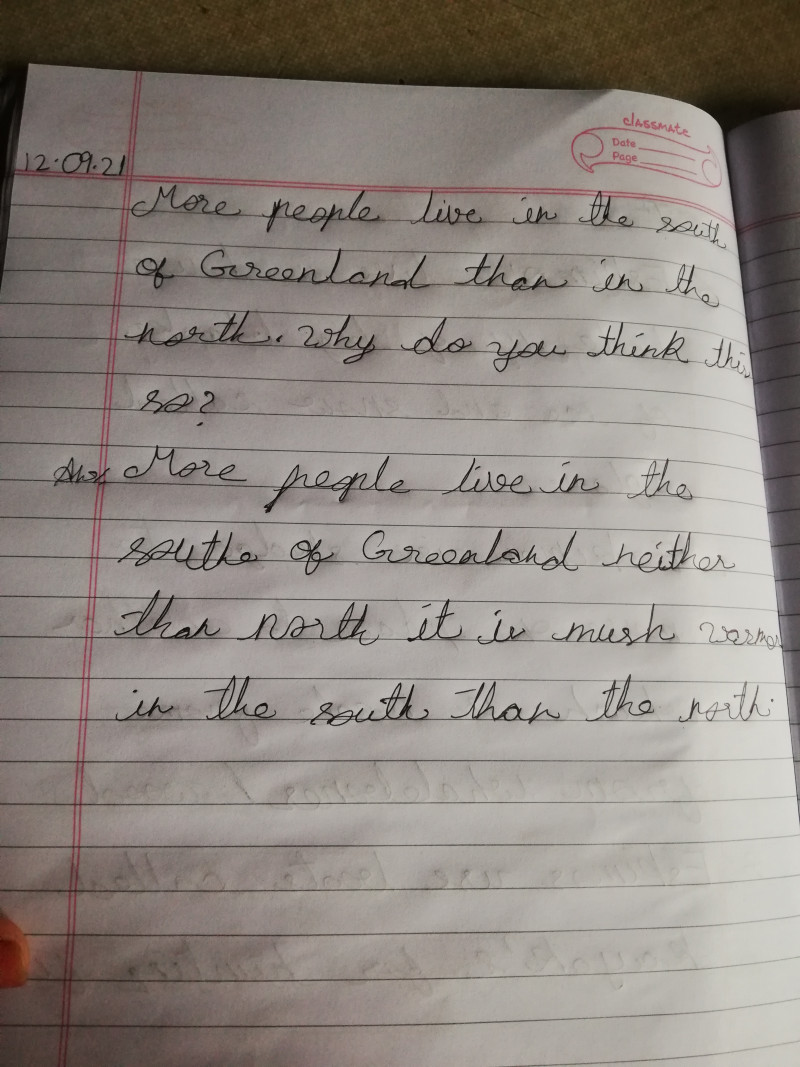 classmate
Date
Page
12.09.21
More people live in the south
of Greenland than in the
north. Why do you think this
so?
Ans More people live in the
southe of Greenland neither
than north it is mush warmer
in the south than the north.